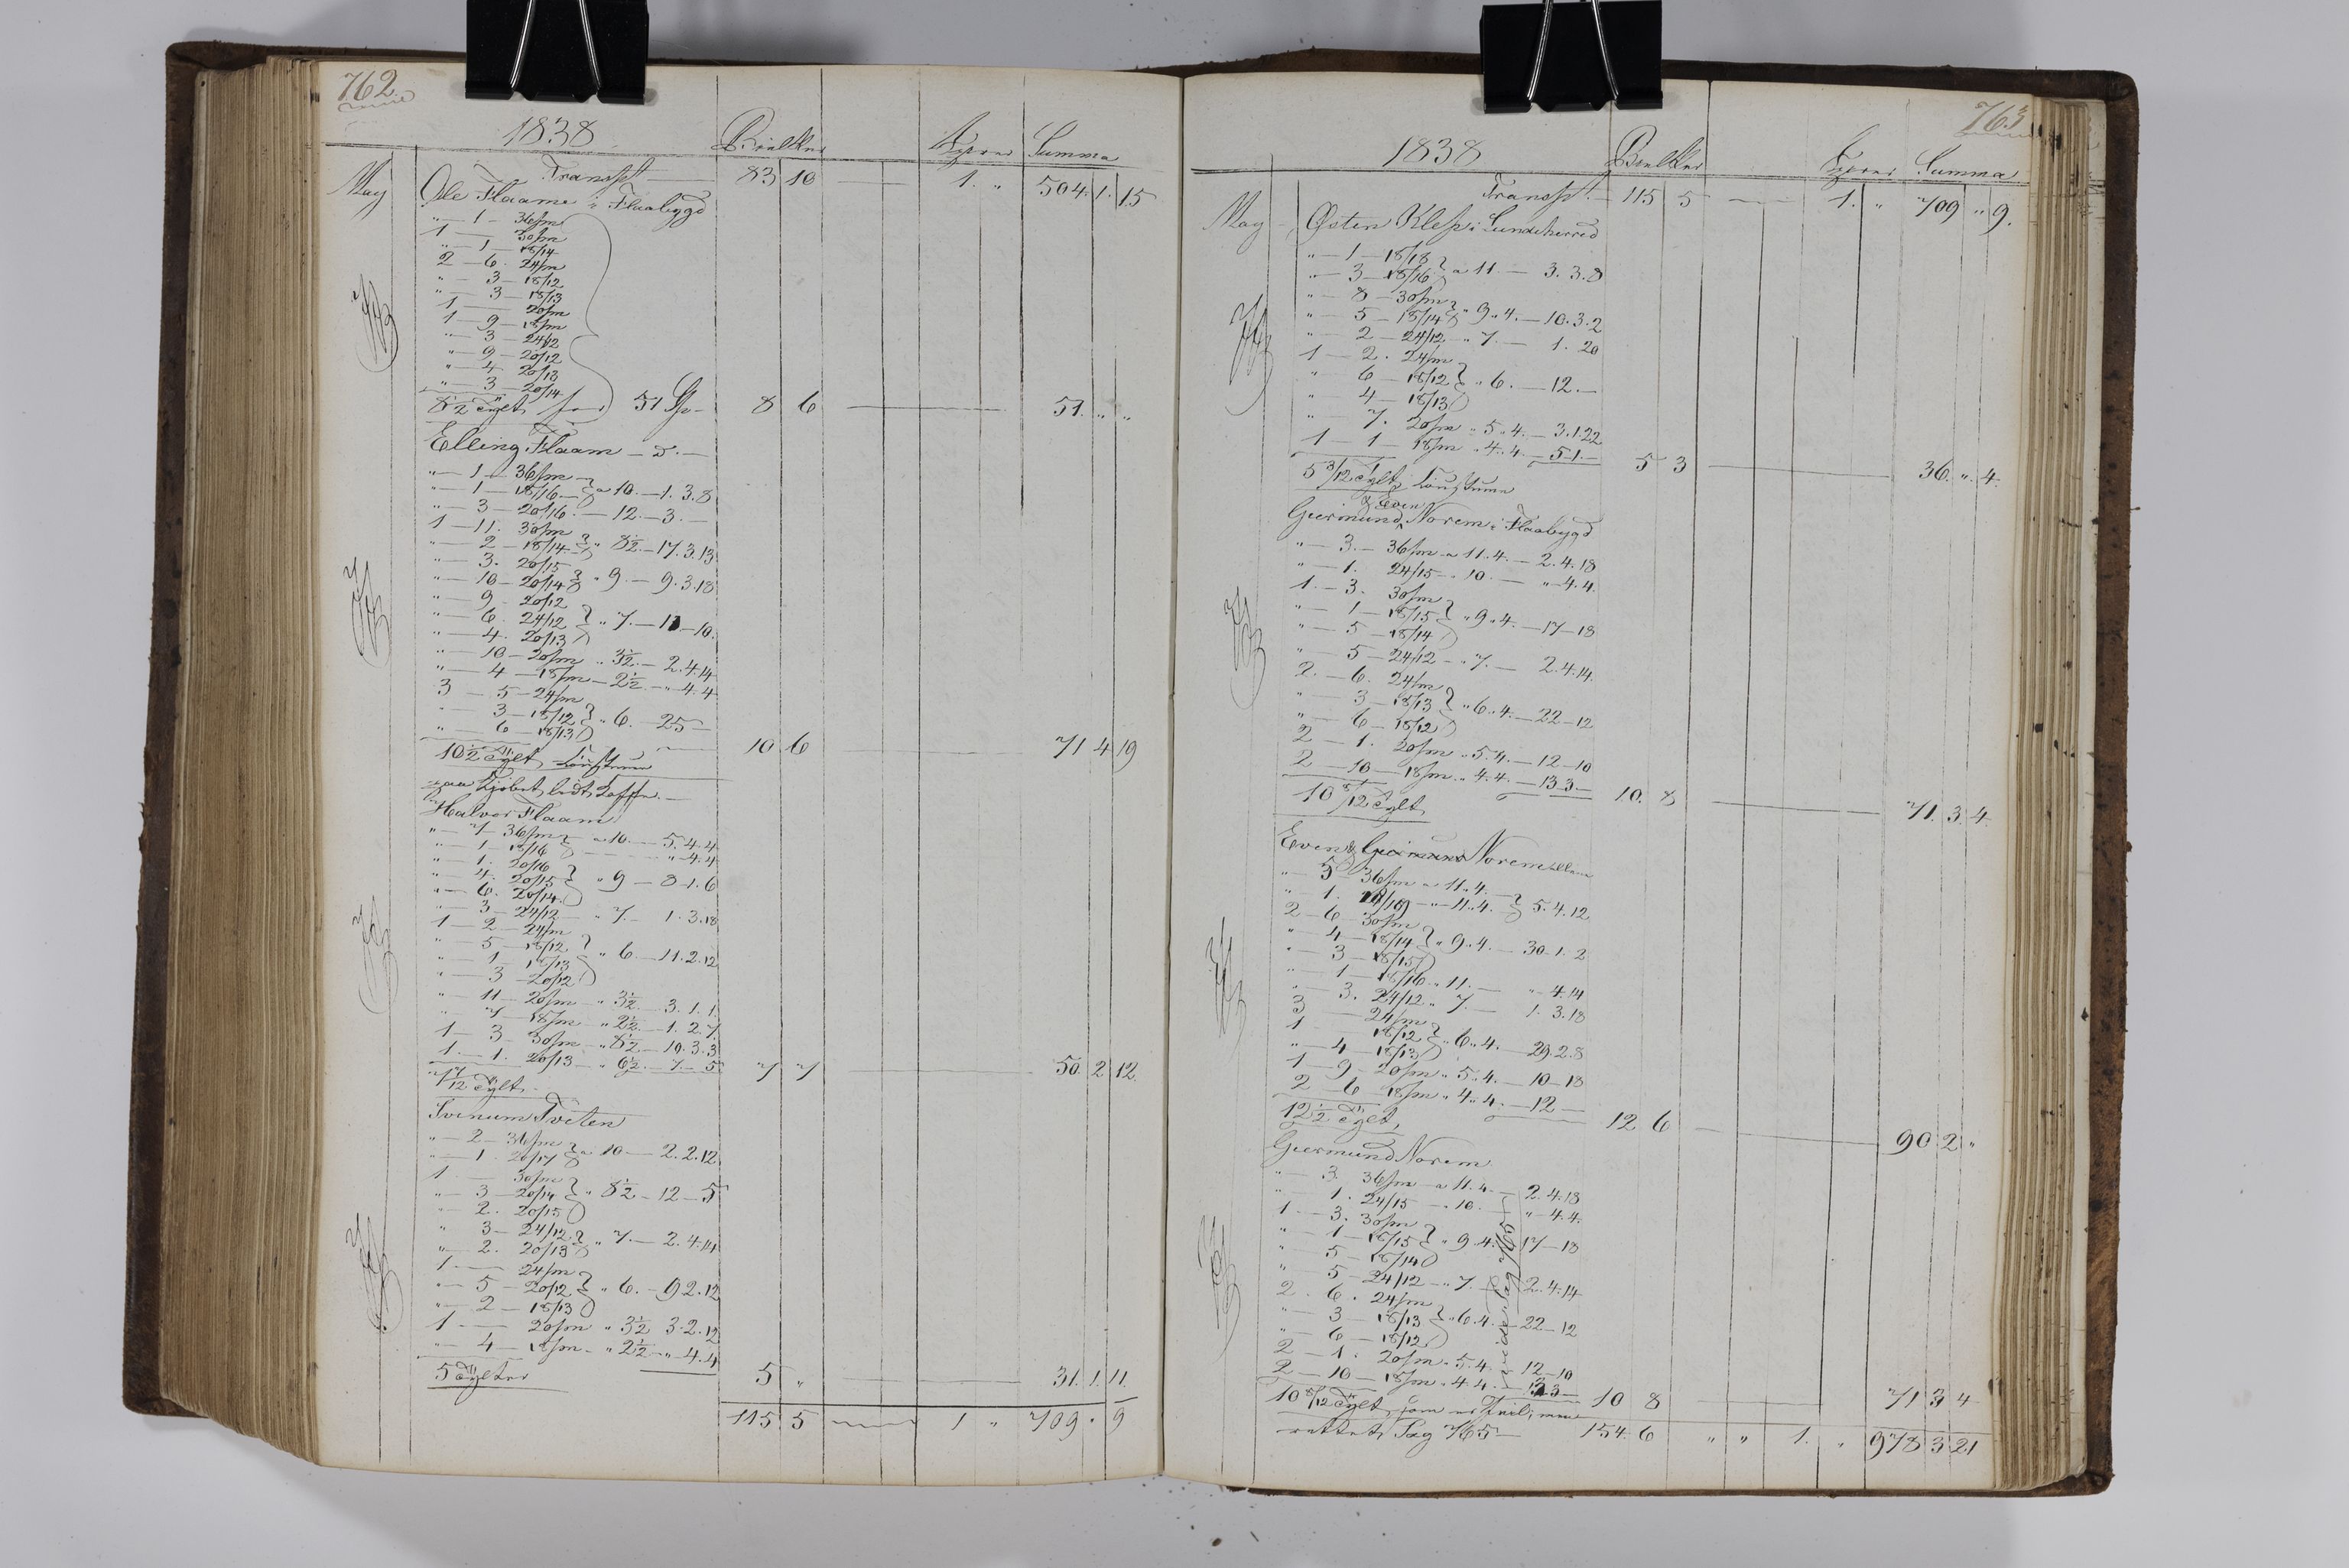 762.
1838 Bielker Summa
Transpt 83 10 — 1. " 504. 1. 15
May Ole Flaame i Flaabygd
" — 1 — 36/m
1 — 30/m
" — 1 — 18/14
2 — 6. 24/m
" — 3 — 18/12
" — 3 — 18/13
1 — 20/m
1 — 9 — 18/m
" — 3 — 24/12
" — 9 — 20/12
" — 4 — 20/13
" — 3 — 20/14
8½ Tylt for 51 Sp — 8 6 — 51. " "
Elling Flaam — D. —
" — 1 — 36/m
" — 1 — 18/16 — } a 10. — 1. 3. 8
" — 3 — 20/16. — 12. — 3. —
1 — 11. 30/m
" — 2 — 18/14 } " 8½. — 17. 3. 13
" — 3. 20/15
" — 10 — 20/14 } " 9. — 9. 3. 18
" — 9 — 20/12
" — 6. 24/12 } " 7. — 11 — 10.
" — 4. 20/13
" — 10 — 20/m " 3½. — 2. 4. 14
" — 4 — 18/m — 2½ — " 4. 4
3 — 5 — 24/m
" — 3 — 18/12 } " 6. — 25 —
" — 6 — 18/13
10½ Tylt 10 6 — 71 4 19
Halvor Flaam
" — 7 — 36/m } a 10 — 5. 4. 4
" — 1 — 18/16 — " 4. 4
" — 1. 20/16
" — 4. 20/15 } " 9 — 8. 1. 6
" — 6. 20/14
" — 3 — 24/12 — " 7. — 1. 3. 18
1 — 2 — 24/m
" — 5 — 18/12
" — 1 — 18/13 } " 6 — 11. 2. 12
" — 3 — 20/12
" — 11 — 20/m — " 3½ — 3. 1. 1
" — 7 — 18/m — " 2½ — 1. 2. 7.
1 — 3 — 30/m — " 8½ — 10. 3. 3
1 — 1. 20/13 — " 6½. — 7. — 5
7 7/12 Tylt 7 7 — 50. 2 12.
Svenum Tveten
" — 2 — 36/m
" — 1. 20/17 } a 10 — 2. 2. 12
1 — 30/m
" — 3 — 20/14 } " 8½ — 12 — 5
" — 2. 20/15
" 3 — 24/12
" — 2. 20/13 } " 7. — 2. 4. 14
1. — 24/m
" — 5 — 20/12 } " 6. — 9 2. 12
" — 2 — 18/13
1 — 20/m " 3½ 3. 2. 12
" — 4 — 18/m — " 2½ — " 4. 4
5 Tylter 5 " — 31. 1. 11.
115 5 — 1 " 709 " 9
763
1838 Bielker Summa
Transpt. 115 5 — 1. " 709 " 9.
May Østen Klep i Lundeherred
" — 1 — 18/18
" — 3 — 18/16 } a 11. — 3. 3. 8
" — 8 — 30/m
" — 5 — 18/14 } " 9. 4. — 10. 3. 2
" — 2 — 24/12 " 7. — 1. 20
1 — 2. 24/m
" — 6 — 18/12 } " 6. — 12. —
" — 4 — 18/13
" — 7. 20/m " 5. 4. — 3. 1. 22
1 — 1 — 18/m " 4. 4. — 5. 1. —
5 3/12 Tylt 5 3 — 36. " 4.
& Even
Geermund Norem i Flaabygd
" — 3. — 36/m — a 11. 4. — 2. 4. 18
" — 1. 24/15 — " 10. — " 4. 4.
1 — 3. 30/m
" — 1 — 18/15 } " 9. 4. — 17 — 18
" — 5 — 18/14
" — 5 — 24/12 — " 7. — 2. 4. 14.
2. — 6. 24/m
" — 3 — 18/13 } " 6. 4. — 22 — 12
" — 6 — 18/12
2 — 1. 20/m " 5. 4. — 12 — 10
2 — 10 — 18/m " 4. 4. — 13 3 —
10 8/12 Tylt 10. 8 — 71. 3. 4.
Even & Geermund Norem
" — 5 — 36/m — a 11. 4.
" — 1. — " — 11. 4. } 5. 4. 12
2 — 6 — 30/m
" — 4 — 18/14 } " 9. 4. — 30. 1. 2
" — 3 — 18/15
" — 1 — 18/16 " 11. — " 4. 14
" — 3. 24/12 " 7. — 1. 3. 18
3 — 24/m
1 — 18/12 } " 6. 4. — 29. 2. 8
" — 4 — 18/13
1 — 9 — 20/m " 5. 4. — 10 — 18
2 — 6 — 18/m " 4. 4. — 12 —
12½ Tylt, 12 6 — 90 2 "
Geermund Norem
" — 3. 36/m — a 11. 4. — 2. 4. 18
" 1. 24/15 — " 10. — " — 4. 4.
1 — 3. 30/m
" — 1 — 18/15 } " 9. 4. 17 — 18
" — 5 — 18/14
" — 5 — 24/12 — " 7. — 2. 4. 14
2. 6. 24/m
" — 3 — 18/13 } " 6. 4. — 22 — 12
" — 6 — 18/12
2 — 1. 20/m " 5. 4. — 12 — 10
2 — 10 — 18/m " 4. 4. — 13 3 —
vide Pag 765
10 8/12 Tylt, som er 10 8 — 71 3 4
rettet Pag 765 — 154 6 " " 1. " 978 3 21